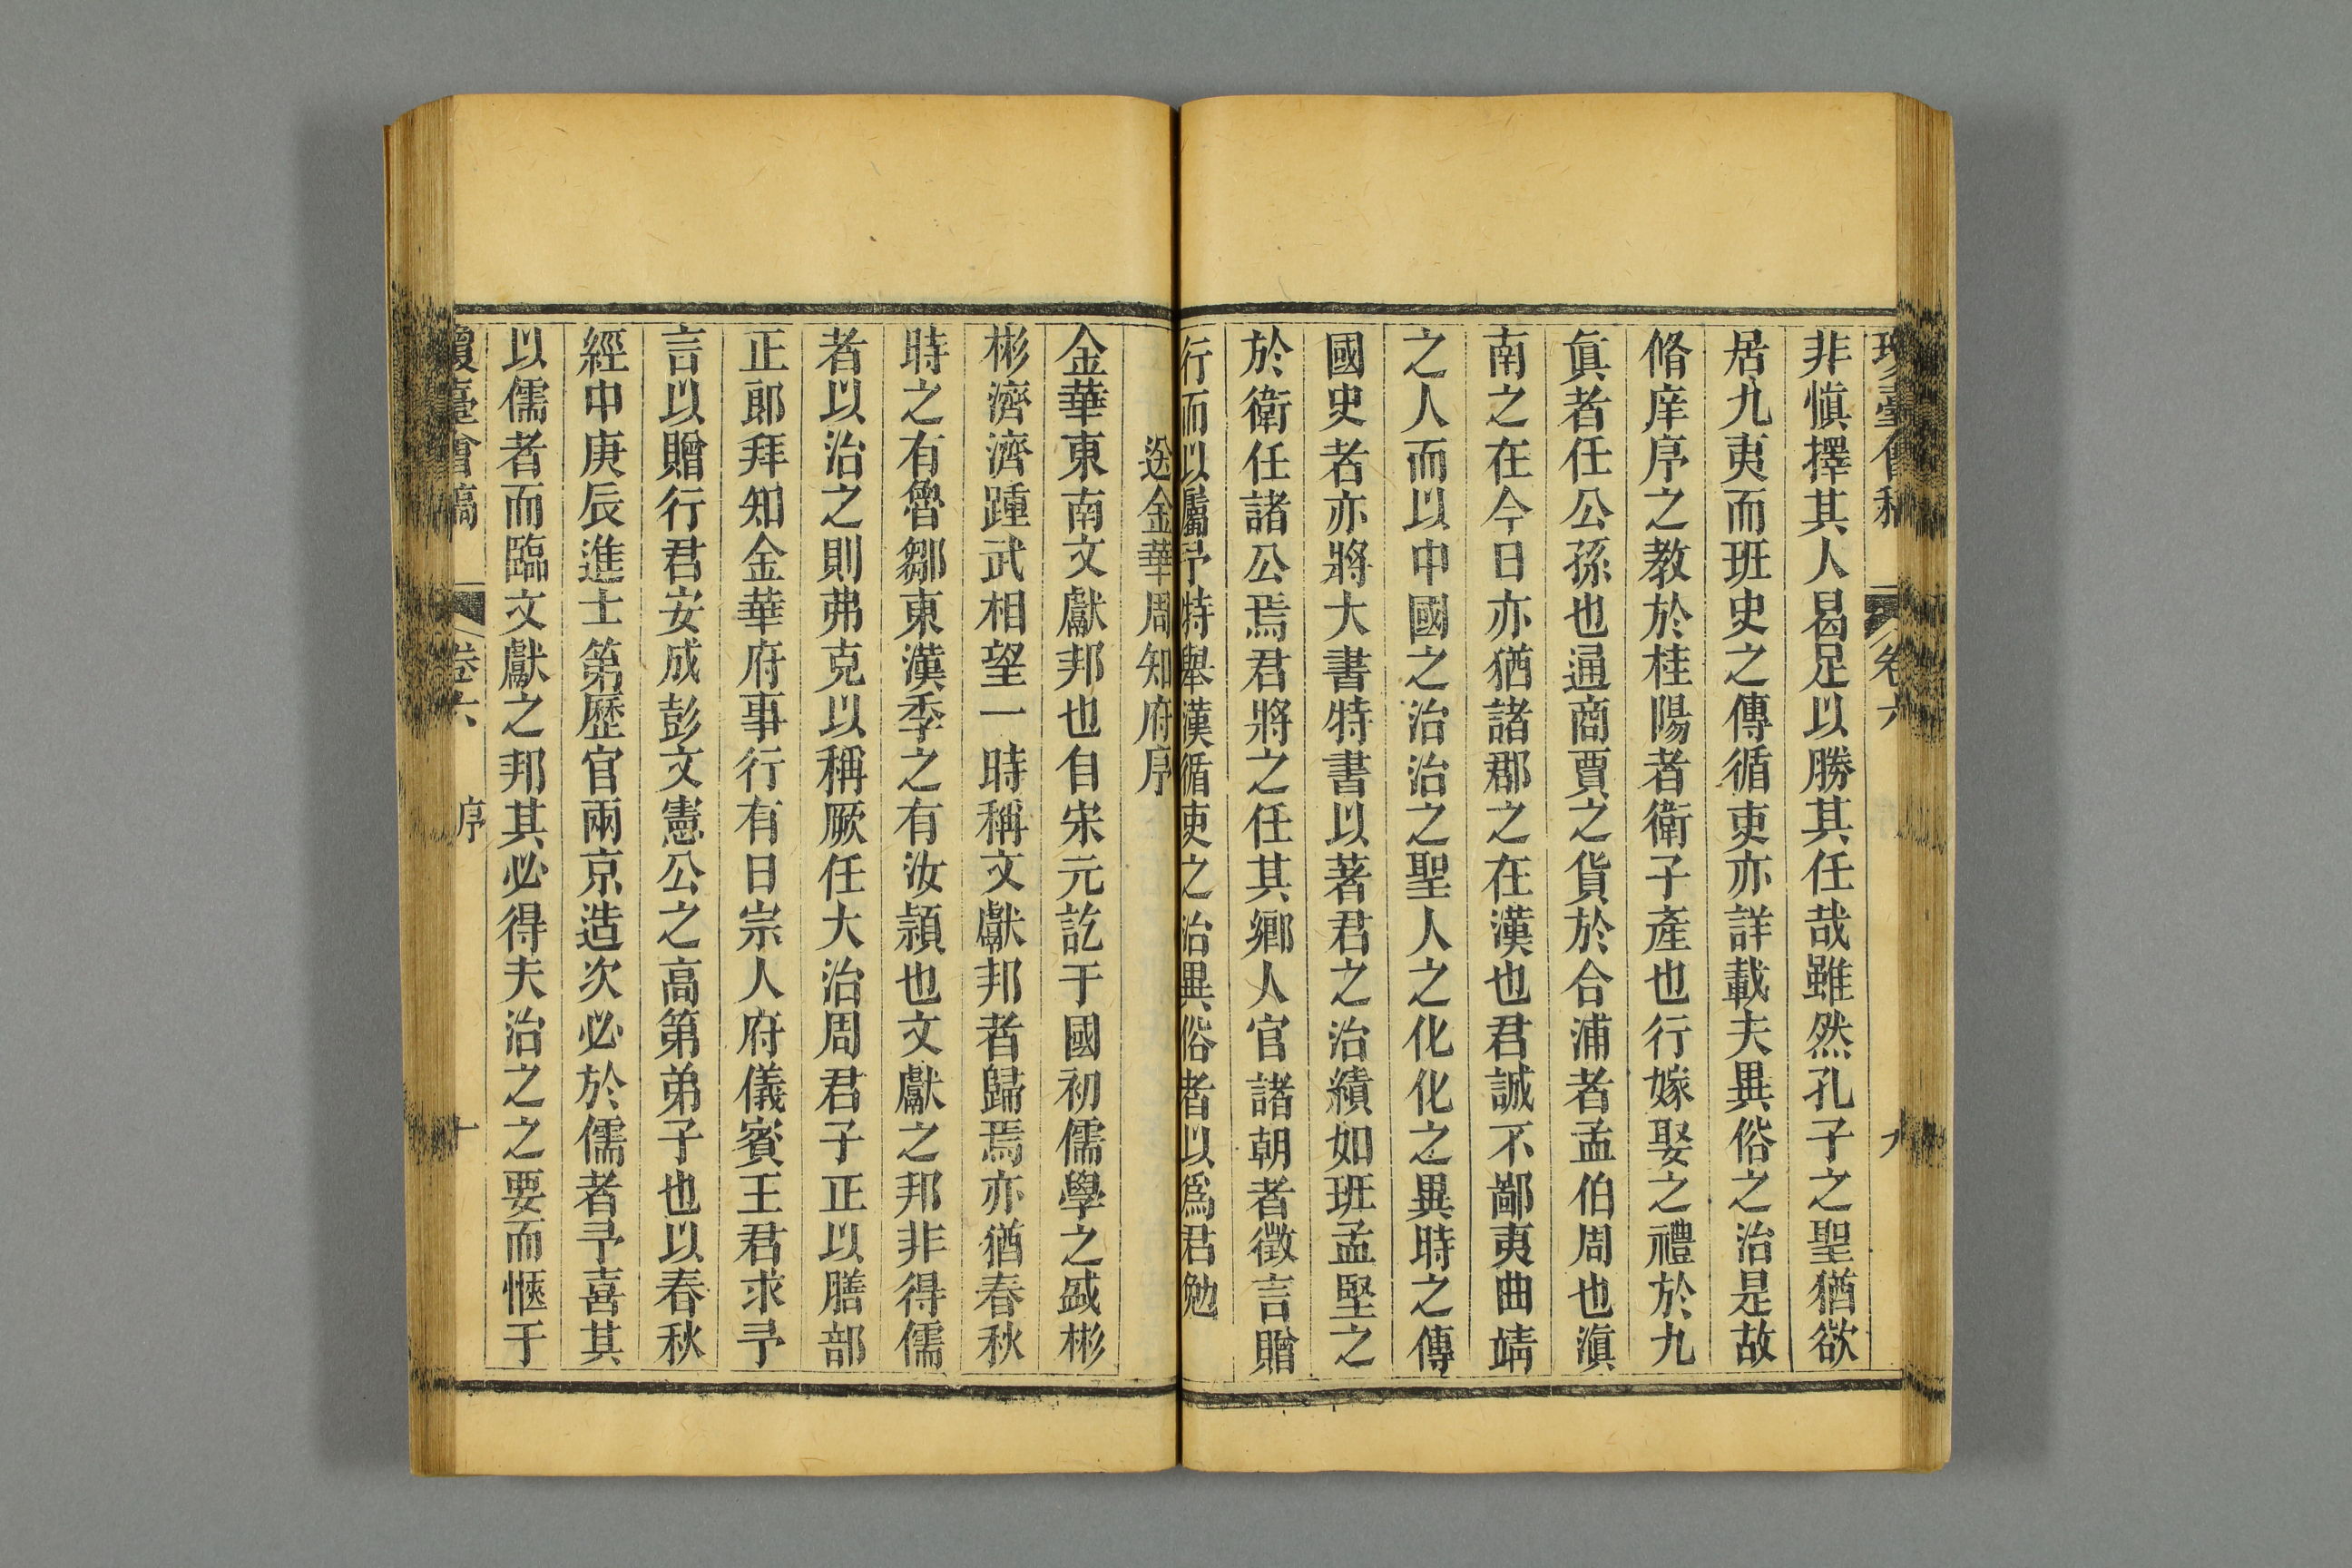 瓊臺會稿 卷六 九
非愼擇其人曷足以勝其任哉雖然孔子之聖猶欲
居九夷而班史之傳循吏亦詳載夫異俗之治是故
脩庠序之教於桂陽者衛子產也行嫁娶之禮於九
眞者任公孫也通商賈之貨於合浦者孟伯周也滇
南之在今日亦猶諸郡之在漢也君誠不鄙夷曲靖
之人而以中國之治治之聖人之化化之異時之傳
國史者亦將大書特書以著君之治績如班孟堅之
於衛任諸公焉君將之任其鄉人官諸朝者徵言贈
行而以屬予特舉漢循吏之治異俗者以爲君勉
送金華周知府序
金華東南文獻邦也自宋元訖于國初儒學之盛彬
彬濟濟踵武相望一時稱文獻邦者歸焉亦猶春秋
時之有魯鄒東漢季之有汝潁也文獻之邦非得儒
者以治之則弗克以稱厥任大治周君子正以膳部
正郎拜知金華府事行有日宗人府儀賓王君求予
言以贈行君安成彭文憲公之高第弟子也以春秋
經中庚辰進士第歷官兩京造次必於儒者予喜其
以儒者而臨文獻之邦其必得夫治之之要而愜于
瓊臺會稿 卷六 序 十